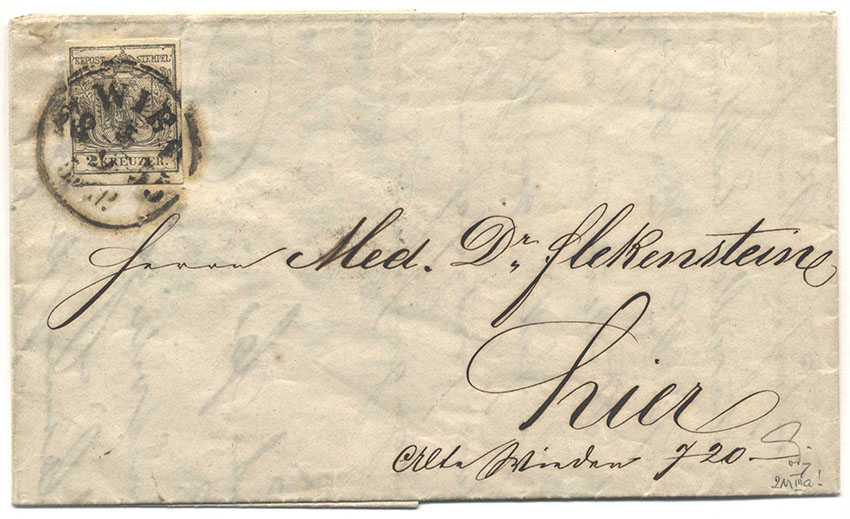 KKPOST STEMPEL
WIEN
2 KREUZER.
Herrn Med. Dr. Flekenstein
hier
Alte Wieden 720
2M IIIa!